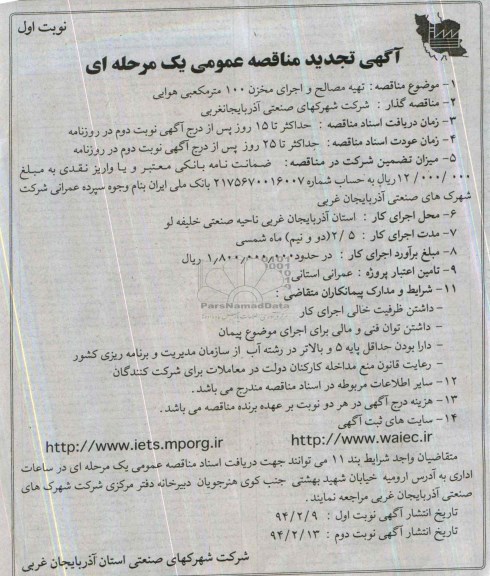 نوبت اول
آگهی تجدید مناقصه عمومی یک مرحله ای
۱- موضوع مناقصه: تهیه مصالح و اجرای مخزن ۱۰۰ مترمکعبی هوایی
۲- مناقصه گذار : شرکت شهرکهای صنعتی آذربایجانغربی
۳- زمان دریافت اسناد مناقصه : حداکثر تا ۱۵ روز پس از درج آگهی نوبت دوم در روزنامه
۴- زمان عودت اسناد مناقصه : حداکثر تا ۲۵ روز پس از درج آگهی نوبت دوم در روزنامه
۵- میزان تضمین شرکت در مناقصه: ضمانت نامه بانکی معتبر و یا واریز نقدی به مبلغ
۱۲/۰۰۰/۰۰۰ ریال به حساب شماره ۲۱۷۵۶۷۰۰۱۶۰۰۷ بانک ملی ایران بنام وجوه سپرده عمرانی شرکت
شهرک های صنعتی آذربایجان غربی
۶- محل اجرای کار : استان آذربایجان غربی ناحیه صنعتی خلیفه لو
۷- مدت اجرای کار : ۲/۵(دو و نیم) ماه شمسی
۸- مبلغ برآورد اجرای کار : در حدود ۱,۸۰۰,۰۰۰,۰۰۰ ریال
۹- تامین اعتبار پروژه : عمرانی استانی
۱۱- شرایط و مدارک پیمانکاران متقاضی :
- داشتن ظرفیت خالی اجرای کار
- داشتن توان فنی و مالی برای اجرای موضوع پیمان
- دارا بودن حداقل پایه ۵ و بالاتر در رشته آب از سازمان مدیریت و برنامه ریزی کشور
- رعایت قانون منع مداخله کارکنان دولت در معاملات برای شرکت کنندگان
۱۲- سایر اطلاعات مربوطه در اسناد مناقصه مندرج می باشد.
۱۳- هزینه درج آگهی در هر دو نوبت بر عهده برنده مناقصه می باشد.
۱۴- سایت های ثبت آگهی
http://www.waiec.ir http://www.iets.mporg.ir
متقاضیان واجد شرایط بند ۱۱ می توانند جهت دریافت اسناد مناقصه عمومی یک مرحله ای در ساعات
اداری به آدرس ارومیه خیابان شهید بهشتی جنب کوی هنرجویان دبیرخانه دفتر مرکزی شرکت شهرک های
صنعتی آذربایجان غربی مراجعه نمایند.
تاریخ انتشار آگهی نوبت اول : ۹۴/۲/۹
تاریخ انتشار آگهی نوبت دوم : ۹۴/۲/۱۳
شرکت شهرکهای صنعتی استان آذربایجان غربی
ParsNamadData